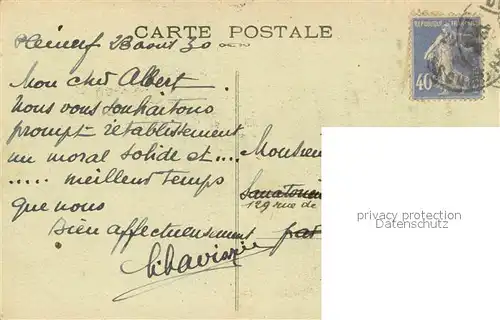 CARTE POSTALE
Pléneuf 28 aout 30
RÉPUBLIQUE FRANÇAISE
40
Mon cher Albert
Nous vous souhaitons
prompt rétablissement
un moral solide et ....
..... meilleur temps
que nous
Bien affectueusement
Monsieur
Sanatorium
129 rue de
par
privacy protection
Datenschutz